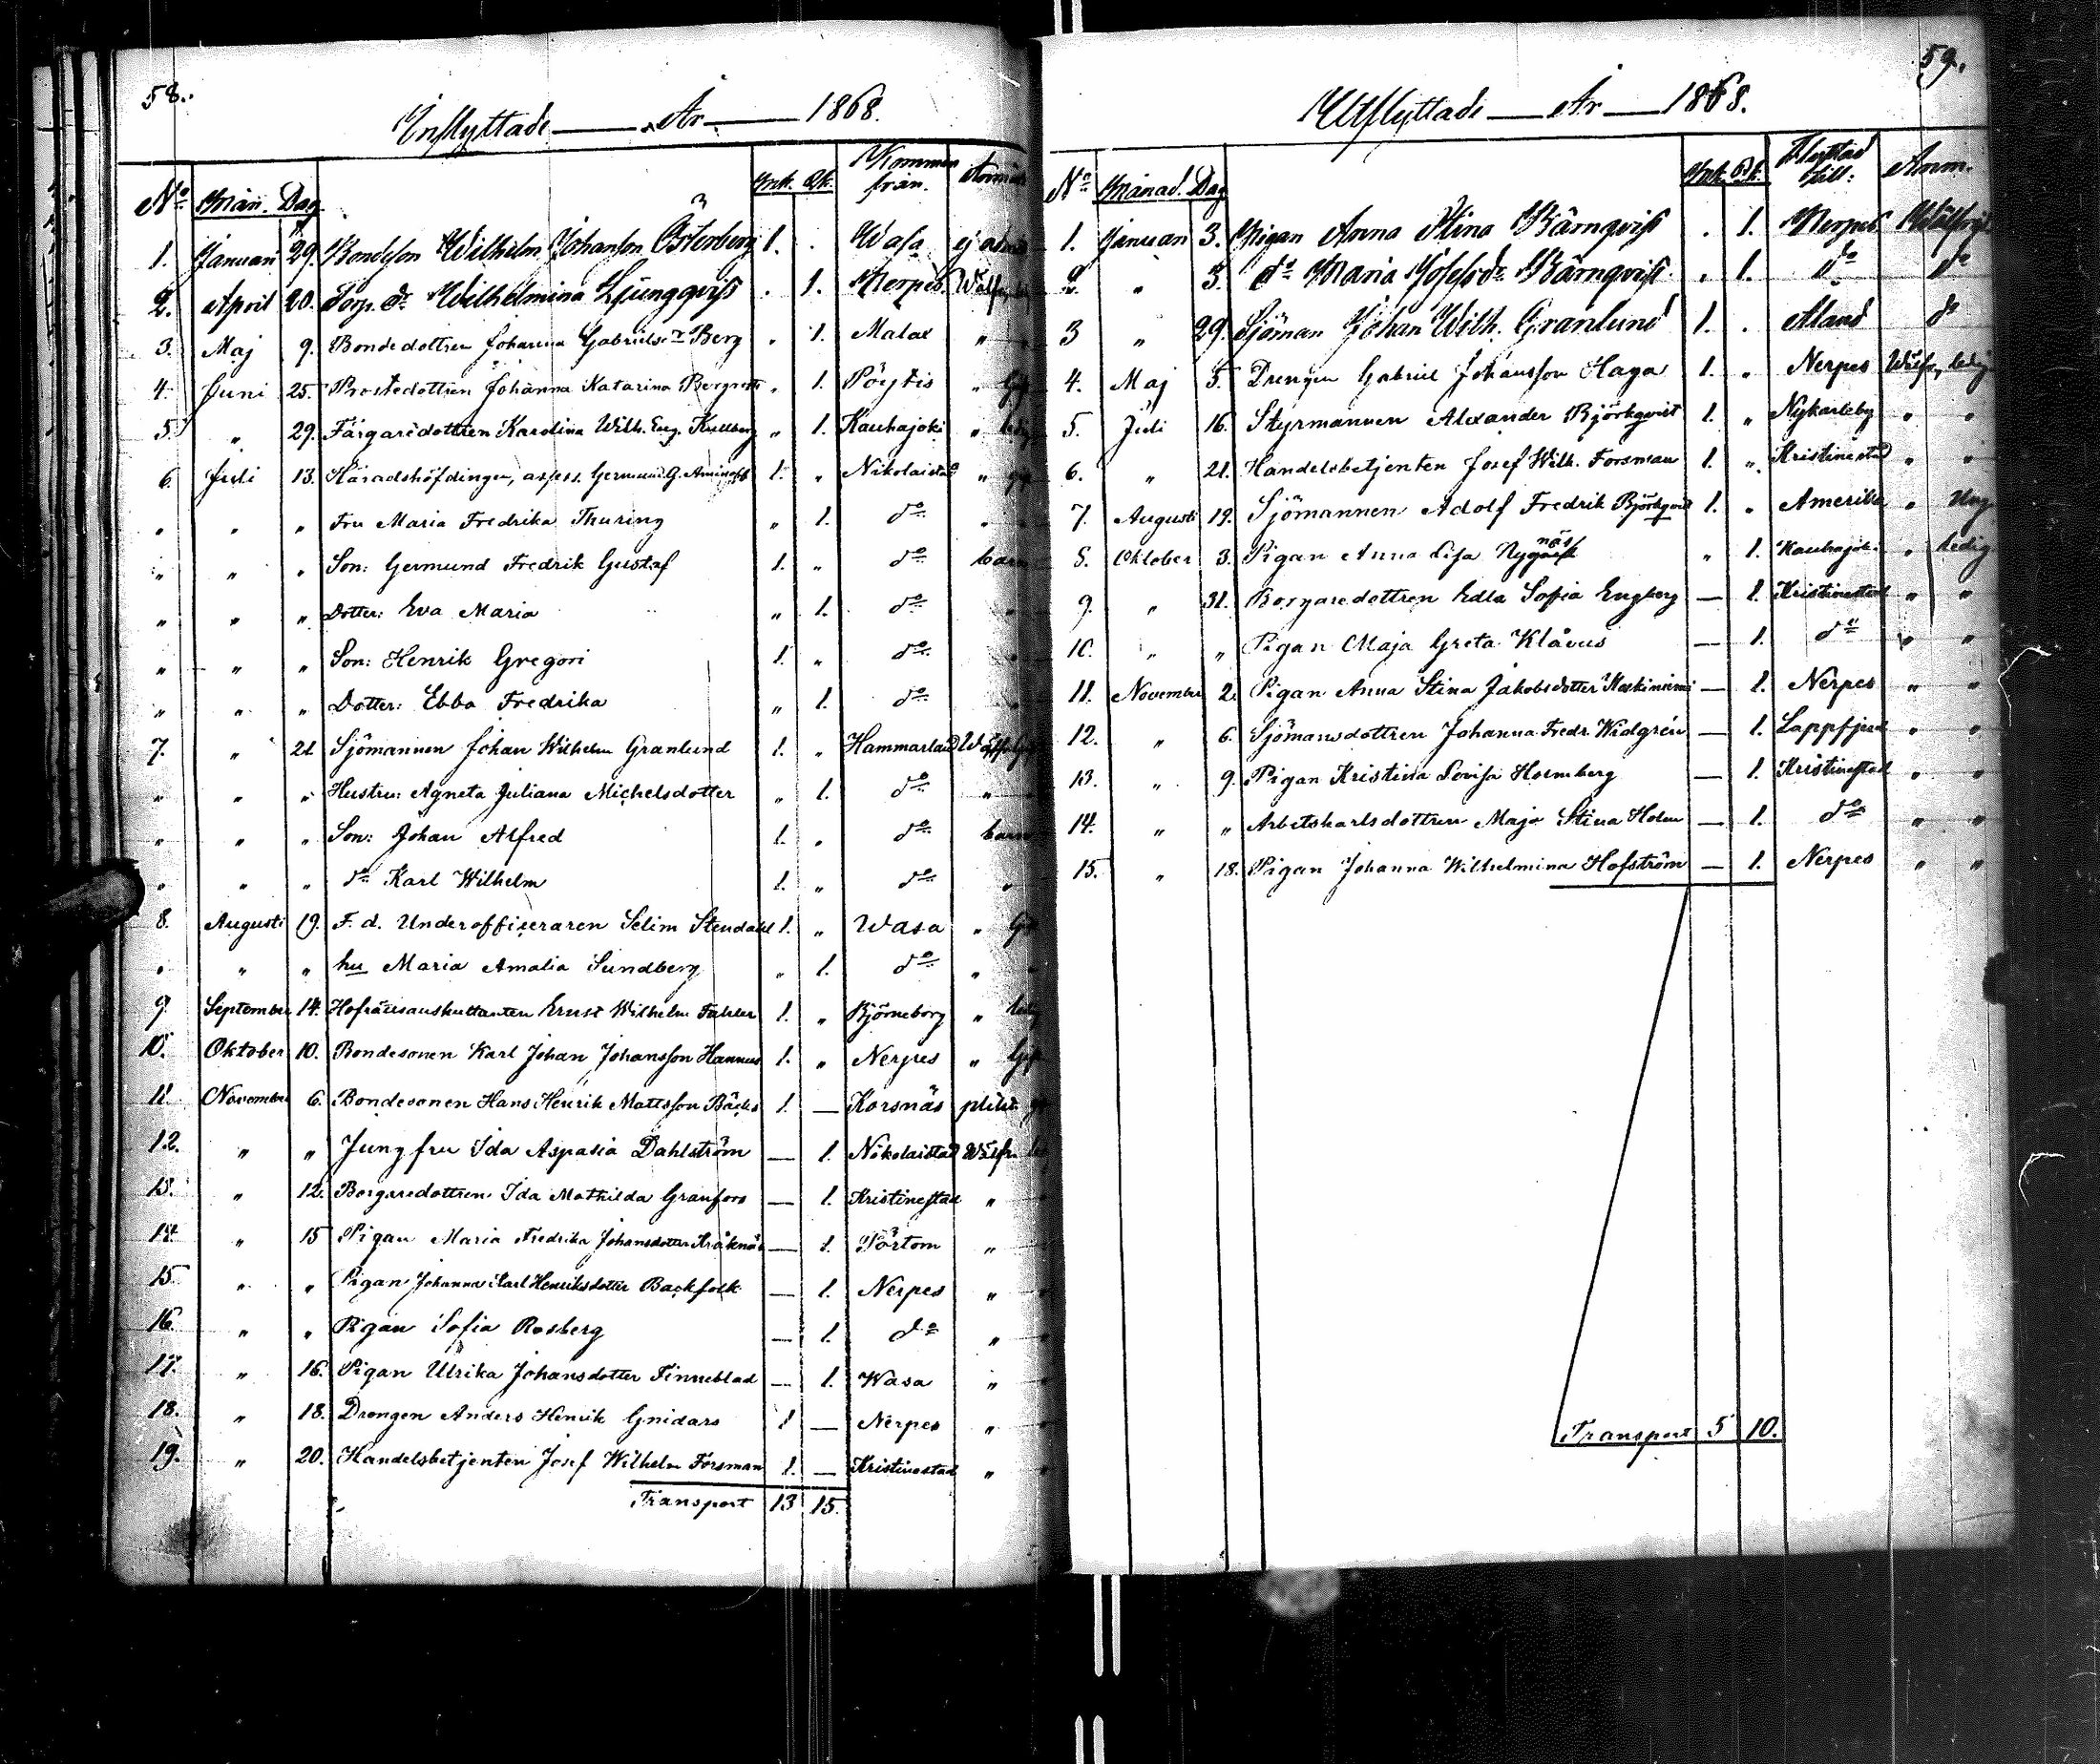 58.
Inflyttade År 1868.
No Mån. Dag. Mk. Qk. Kommen från.
1. Januari 29. Bondeson Wilhelm Johanson Österberg 1. . Wasa ej
2. April 20. Torp. dr Wilhelmina Ljungqvist . 1. Nerpes
3. Maj 9. Bondedottren Johanna Gabrielsdr Berg " 1. Malax "
4. Juni 25. Prostedottren Johanna Katarina " 1. Pöytis "
5. " 29. Färgaredottren Karolina Wilh. Eug. " 1. Kauhajoki "
6. Juli 13. Häradshöfdingen, assess. Germund G. Aminoff 1. " Nikolaistad "
" " " Fru Maria Fredrika Thuring " 1. do
" " " Son: Germund Fredrik Gustaf 1. " do barn
" " " Dotter: Eva Maria " 1. do "
" " " Son: Henrik Gregori 1. " do
" " " Dotter: Ebba Fredrika " 1. do
7. " 21 Sjömannen Johan Wilhelm Granlund 1. " Hammarland
" " " Hustru: Agneta Juliana Michelsdotter " 1. do "
" " " Son: Johan Alfred 1. " do barn
" " " do Karl Wilhelm 1. " do "
8. Augusti 19. F. d. Underofficeraren Selim Stendahl 1. " Wasa "
" " " hu Maria Amalia Sundberg " 1. do "
9. September 14. Hofrättsauskultanten Ernst Wilhelm Fahler 1. " Björneborg "
10. Oktober 10. Bondesonen Karl Johan Johansson Hannus 1. " Nerpes "
11. November 6. Bondesonen Hans Henrik Mattsson Bäcks 1. — Korsnäs
12. " " Jungfru Ida Aspasia Dahlström — 1. Nikolaistad Wälfr.
13. " 12. Borgaredottren Ida Mathilda Granfors — 1. Kristinestad "
14. " 15 Pigan Maria Fredrika Johansdotter — 1. Pörtom "
15. " " Pigan Johanna Karl Henriksdotter Backfolk — 1. Nerpes "
16. " " Pigan Sofia Rosberg — 1. do "
17. " 16. Pigan Ulrika Johansdotter Finneblad — 1. Wasa "
18. " 18. Drengen Anders Henrik Gnidars 1 — Nerpes "
19. " 20. Handelsbetjenten Josef Wilhelm Forsman 1. — Kristinestad "
Transport 13 15.
59.
Utflyttade År 1868.
No Månad. Dag Mk. Qk. Flyttad till: Anm.
1. Januari 3. Pigan Anna Stina Bärnqvist . 1. Nerpes
2. " 3. do Maria Josefsdr Bärnqvist . 1. do do
3 " 29. Sjöman Johan Wilh. Granlund 1. . Åland do
4. Maj 5. Drengen Gabriel Johansson Haga 1. " Nerpes Wälfr. ledig
5. Juli 16. Styrmannen Alexander Björkqvist 1. " Nykarleby " "
6. " 21. Handelsbetjenten Josef Wilh. Forsman 1. " Kristinestad " "
7. Augusti 19. Sjömannen Adolf Fredrik Björkqvist 1. " Amerika "
8. Oktober 3. Pigan Anna Lisa Nygnäs " 1. Kauhajoki " ledig
9. " 31. Borgaredottren Edla Sofia Engberg — 1. Kristinestad " "
10. " " Pigan Maja Greta Klåvus — 1. do " "
11. November 2. Pigan Anna Stina Jakobsdotter Koskiniemi — 1. Nerpes " "
12. " 6. Sjömansdottren Johanna Fredr. Widgrén — 1. Lappfjerd " "
13. " 9. Pigan Kristina Lovisa Holmberg — 1. Kristinestad " "
14. " " Arbetskarlsdottren Maja Stina Holm — 1. do " "
15. " 18. Pigan Johanna Wilhelmina Hofström — 1. Nerpes " "
Transport 5 10.